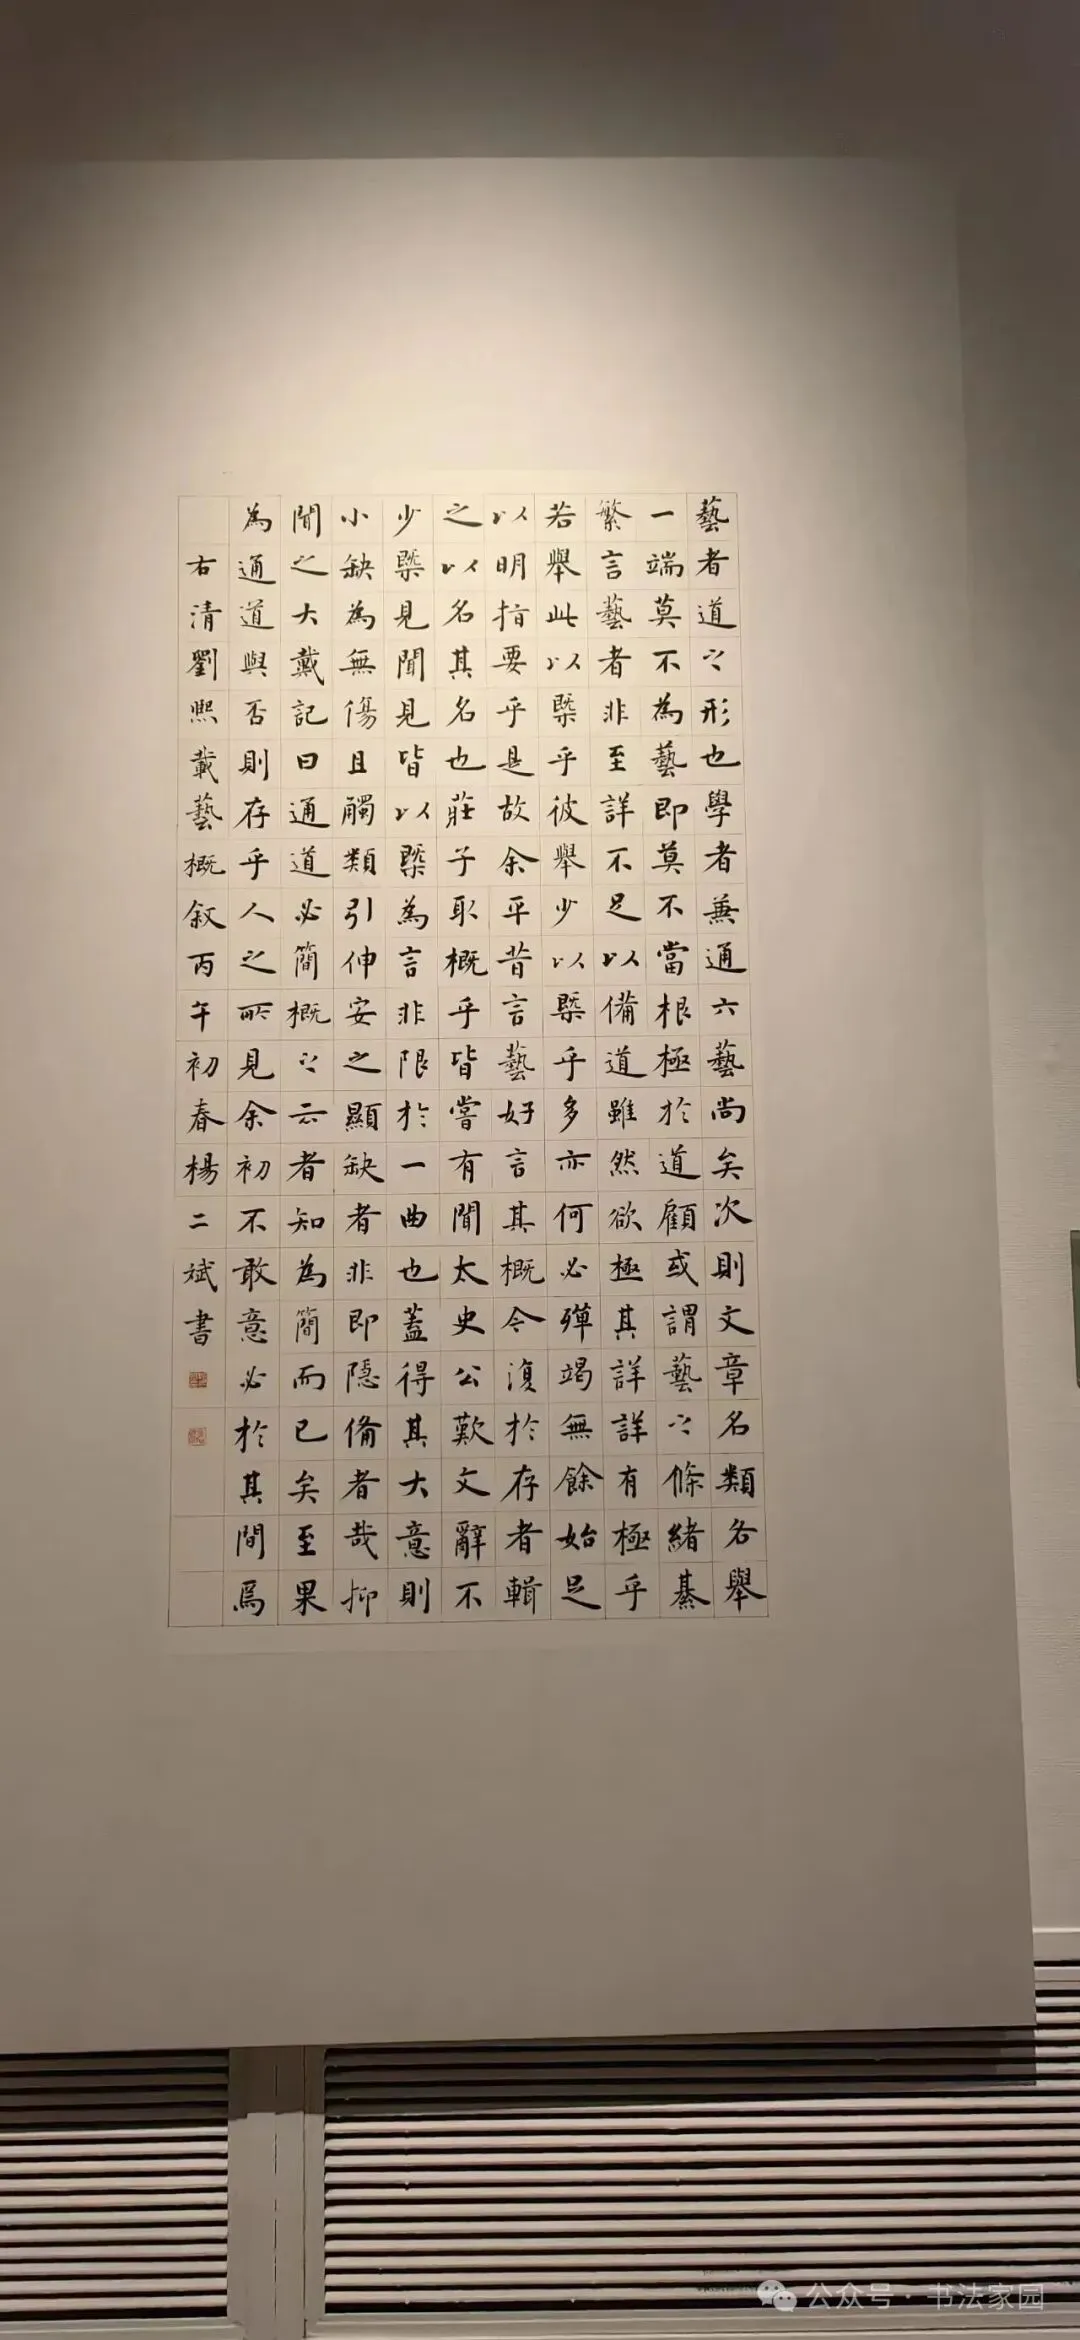 藝者道之形也學者兼通六藝尚矣次則文章名類各舉
一端莫不為藝即莫不當根極於道顧或謂藝之條緒綦
繁言藝者非至詳不足以備道雖然欲極其詳詳有極乎
若舉此以槩乎彼舉少以槩乎多亦何必殫竭無餘始足
以明指要乎是故余平昔言藝好言其概今復於存者輯
之以名其名也莊子取概乎皆嘗有聞太史公歎文辭不
少槩見聞見皆以槩為言非限於一曲也蓋得其大意則
小缺為無傷且觸類引伸安之顯缺者非即隱備者哉抑
聞之大戴記曰通道必簡概之云者知為簡而已矣至果
為通道與否則存乎人之所見余初不敢意必於其間焉
右清劉熙載藝概叙丙午初春楊二斌書
公众号·书法家园